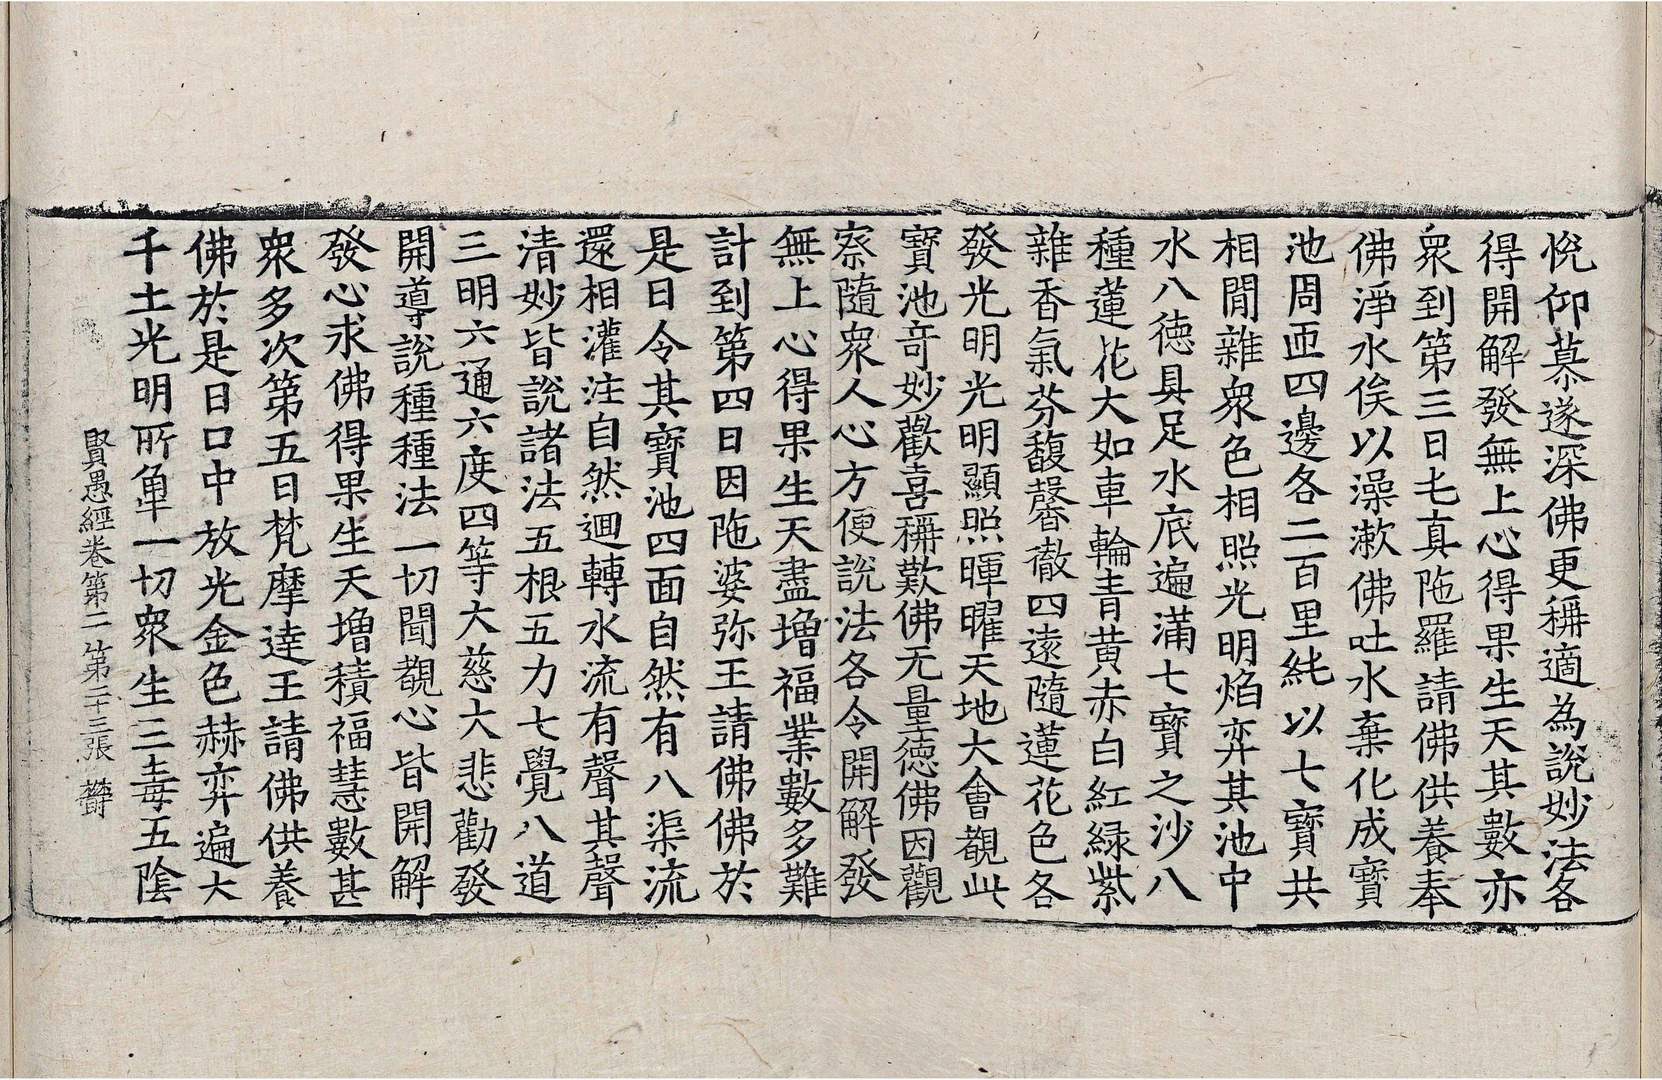 悅仰慕遂深佛更稱適為說妙法各
得開解發無上心得果生天其數亦
衆到第三日乇真陁羅請佛供養奉
佛淨水俟以澡漱佛吐水棄化成寶
池周帀四邊各二百里純以七寶共
相間雜衆色相照光明焰弈其池中
水八德具足水底遍滿七寶之沙八
種蓮花大如車輪青黃赤白紅緑紫
雜香氣芬馥馨徹四遠隨蓮花色各
發光明光明顯照暉曜天地大會覩此
寶池竒妙歡喜稱歎佛无量德佛因觀
察隨衆人心方便說法各令開解發
無上心得果生天盡增福業數多難
計到第四日因陁婆弥王請佛佛於
是日令其寶池四面自然有八渠流
還相灌注自然迴轉水流有聲其聲
清妙皆說諸法五根五力七覺八道
三明六通六度四等大慈大悲勸發
開導說種種法一切聞覩心皆開解
發心求佛得果生天增積福慧數甚
衆多次第五日梵摩達王請佛供養
佛於是日口中放光金色赫弈遍大
千土光明所至一切衆生三毒五陰
賢愚經卷第二 第二十三張 欝